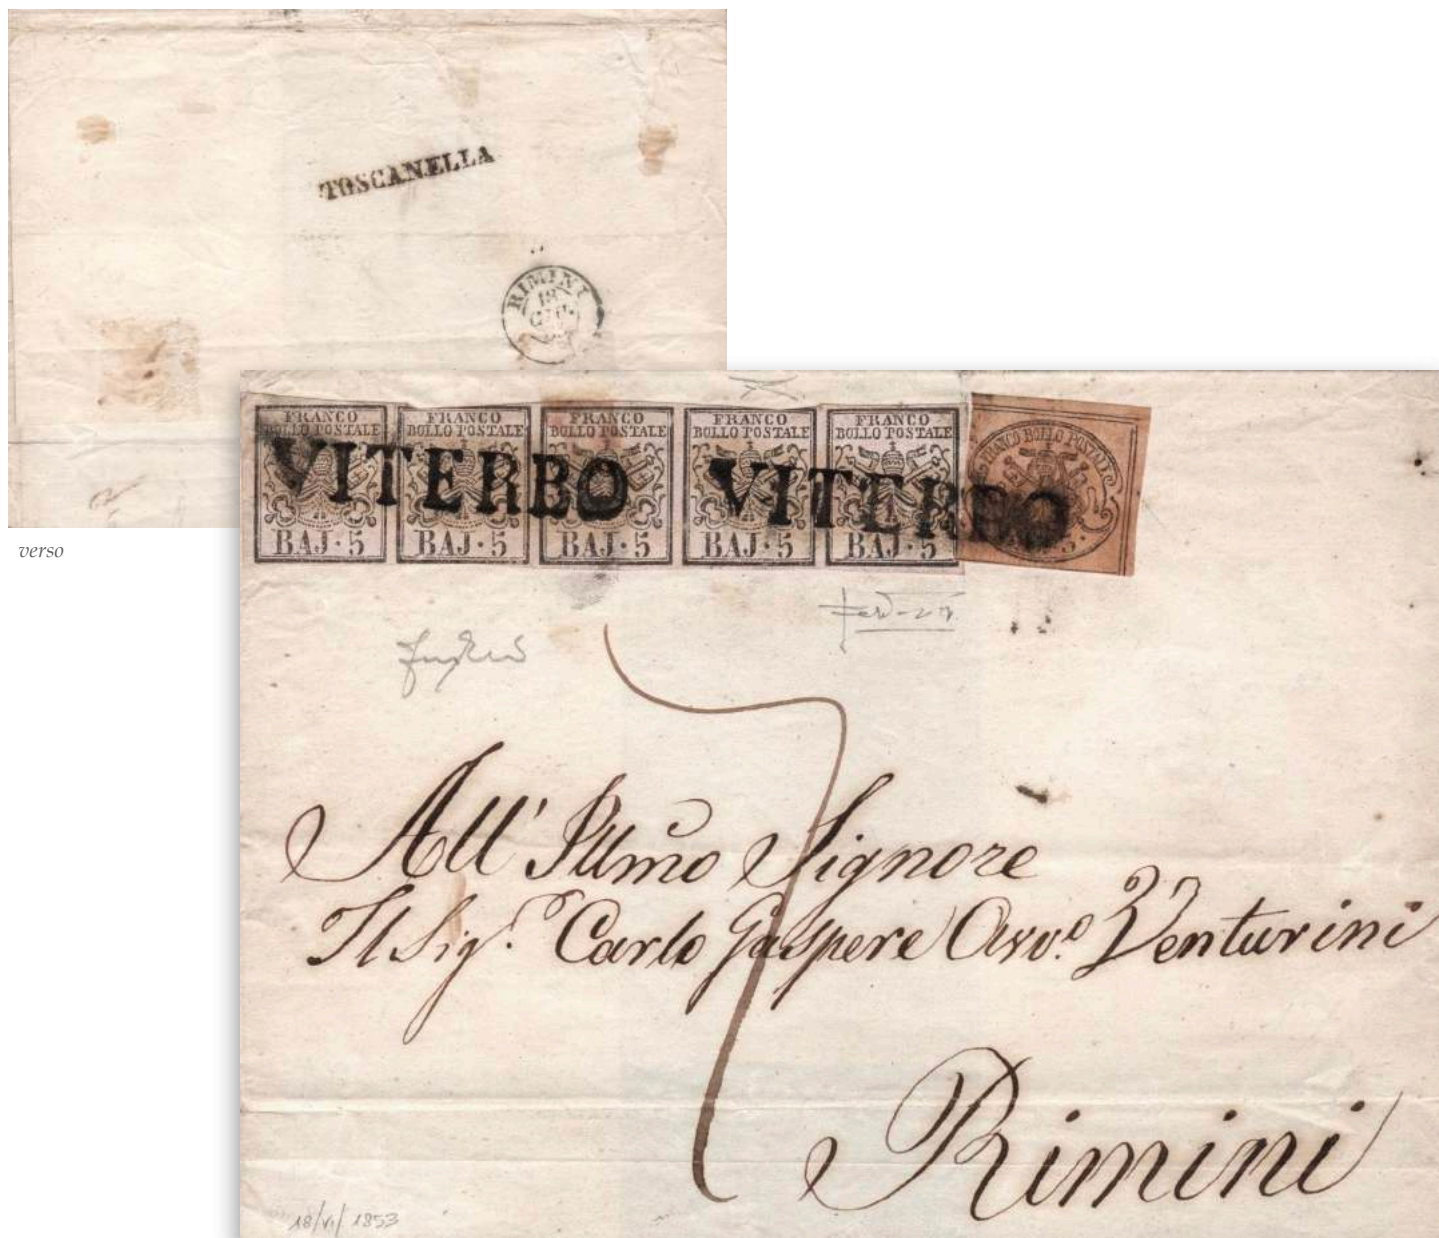 TOSCANELLA
RIMINI
18
verso
FRANCO BOLLO POSTALE BAJ·5
FRANCO BOLLO POSTALE BAJ·5
FRANCO BOLLO POSTALE BAJ·5
FRANCO BOLLO POSTALE BAJ·5
FRANCO BOLLO POSTALE BAJ·5
FRANCO BOLLO POSTALE
VITERBO VITERBO
7
All' Illmo Signore
Il Sig.e Carlo Gaspere Avv.o Venturini
Rimini
18/VI/1853